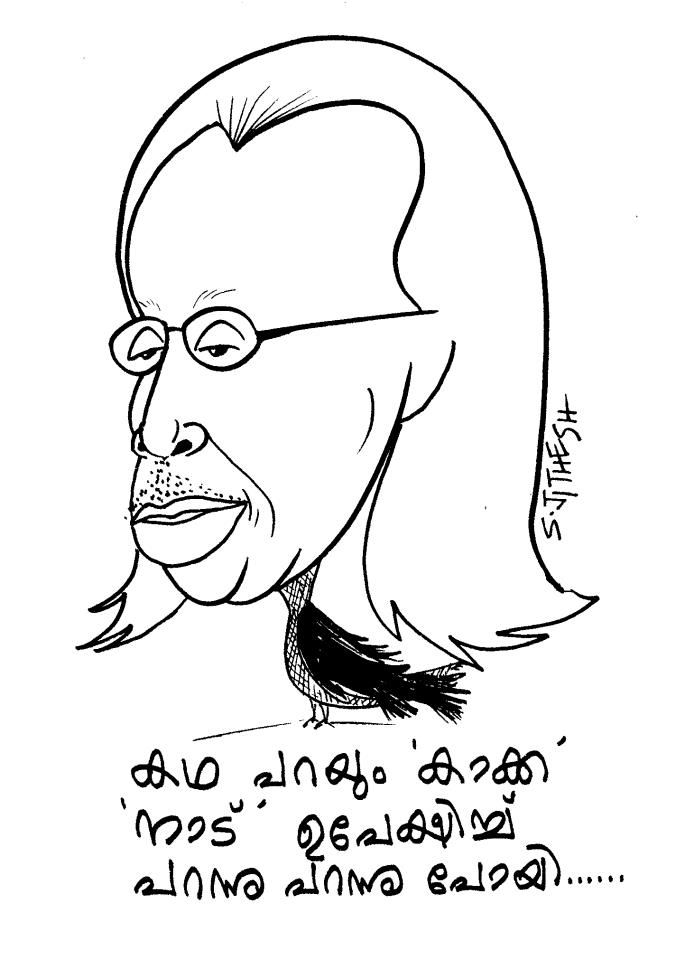 S.JITHESH
കഥ പറയും 'കാക്ക'
'നാട്' ഉപേക്ഷിച്ച്
പറന്നു പറന്നു പോയി......